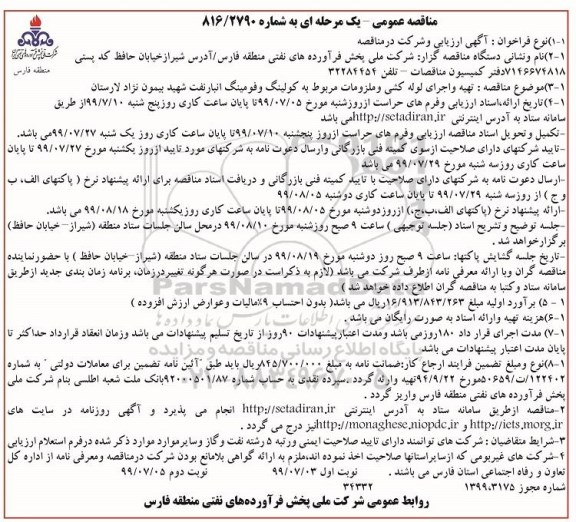 مناقصه عمومی – یک مرحله ای به شماره ۸۱۶/۲۷۹۰
منطقه فارس
۱-۱)نوع فراخوان : آگهی ارزیابی وشرکت درمناقصه
۱-۲)نام ونشانی دستگاه مناقصه گزار: شرکت ملی پخش فرآورده های نفتی منطقه فارس/آدرس شیرازخیابان حافظ کد پستی
۷۱۴۶۶۷۴۸۱۸دفتر کمیسیون مناقصات – تلفن ۳۲۲۸۴۴۵۴
۱-۳)موضوع مناقصه : تهیه واجرای لوله کشی وملزومات مربوط به کولینگ وفومینگ انبارنفت شهید بیمون نژاد لارستان
۱-۴)تاریخ ارائه،اسناد ارزیابی وفرم های حراست ازروزشنبه مورخ ۹۹/۰۷/۰۵تا پایان ساعت کاری روزپنج شنبه ۹۹/۷/۱۰از طریق
سامانه ستاد به آدرس اینترنتی http://setadiran.irمی باشد
-تکمیل و تحویل اسناد مناقصه ارزیابی وفرم های حراست ازروز پنجشنبه ۹۹/۰۷/۱۰تا پایان ساعت کاری روز یک شنبه ۹۹/۰۷/۲۷می باشد.
-تایید شرکتهای دارای صلاحیت ازسوی کمیته فنی بازرگانی وارسال دعوت نامه به شرکتهای مورد تایید ازروز یکشنبه مورخ ۹۹/۰۷/۲۷ تا پایان
ساعت کاری روزسه شنبه مورخ ۹۹/۰۷/۲۹ می باشد
-ارسال دعوت نامه به شرکتهای دارای صلاحیت با تایید کمیته فنی بازرگانی و دریافت اسناد مناقصه برای ارائه پیشنهاد نرخ ( پاکتهای الف، ب
و ج ) از روزسه شنبه ۹۹/۰۷/۲۹ تا پایان ساعت کاری دوشنبه ۹۹/۰۸/۰۵
-ارائه پیشنهاد نرخ (پاکتهای الف،ب،ج) ازروزدوشنبه مورخ ۹۹/۰۸/۰۵ تا پایان ساعت کاری روزیکشنبه مورخ ۹۹/۰۸/۱۸ می باشد.
-جلسه توضیح وتشریح اسناد (جلسه توجیهی ) ساعت ۹ صبح روزشنبه مورخ ۹۹/۰۸/۱۰ درمحل سالن جلسات ستاد منطقه (شیراز– خیابان حافظ)
برگزارخواهد شد .
-تاریخ جلسه گشایش پاکتها: ساعت ۹ صبح روز دوشنبه مورخ ۹۹/۰۸/۱۹ در سالن جلسات ستاد منطقه (شیراز–خیابان حافظ ) با حضورنماینده
مناقصه گران وبا ارائه معرفی نامه ازطرف شرکت می باشد (لازم به ذکراست در صورت هرگونه تغییردرزمان، برنامه زمان بندی جدید ازطریق
سامانه ستاد وکتبا به مناقصه گران اطلاع داده خواهد شد )
۱ – ۵) برآورد اولیه مبلغ ۱۶/۹۱۳/۸۴۳/۲۶۳ریال می باشد( بدون احتساب ۹%مالیات وعوارض ارزش افزوده )
۱-۶)هزینه تهیه وارائه اسناد به صورت رایگان می باشد .
۱-۷) مدت اجرای قرار داد ۱۸۰روزمی باشد ومدت اعتبارپیشنهادات ۹۰روز از تاریخ تسلیم پیشنهادات می باشد وزمان انعقاد قرارداد حداکثر تا
پایان مدت اعتبار پیشنهادات می باشد
۱-۸)نوع ومبلغ تضمین فرایند ارجاع کار:ضمانت نامه به مبلغ ۸۴۵/۷۰۰/۰۰۰ریال باید طبق "آئین نامه تضمین برای معاملات دولتی" به شماره
۱۲۳۴۰۲/ت۵۰۶۵۹مورخ ۹۴/۹/۲۲تهیه وارائه گردد .سپرده نقدی به حساب شماره ۹۲۰۰۰۵۰۱/۸۷بانک ملت شعبه اطلسی بنام شرکت ملی
پخش فرآورده های نفتی منطقه فارس واریز گردد .
۲-مناقصه ازطریق سامانه ستاد به آدرس اینترنتی http://setadiran.ir انجام می پذیرد و آگهی روزنامه در سایت های
http://iets,morg,ir و http://monaghese,niopdc,irنیز درج می گردد .
۳-شرایط متقاضیان : شرکت های توانمند دارای تایید صلاحیت ایمنی ورتبه ۵ رشته نفت وگاز وسایرموارد موارد ذکر شده درفرم استعلام ارزیابی
۴-شرکت های غیربومی که ازسایراستانها صلاحیت اخذ نموده اند،ملزم به ارائه گواهی بلامانع بودن شرکت درمناقصه ومعرفی نامه از اداره کل
تعاون و رفاه اجتماعی استان فارس می باشند . نوبت اول ۹۹/۰۷/۰۳ نوبت دوم ۹۹/۰۷/۰۵
شماره مجوز ۱۳۹۹،۳۱۷۵ ۳۴۳۳۲
روابط عمومی شرکت ملی پخش فرآورده‌های نفتی منطقه فارس